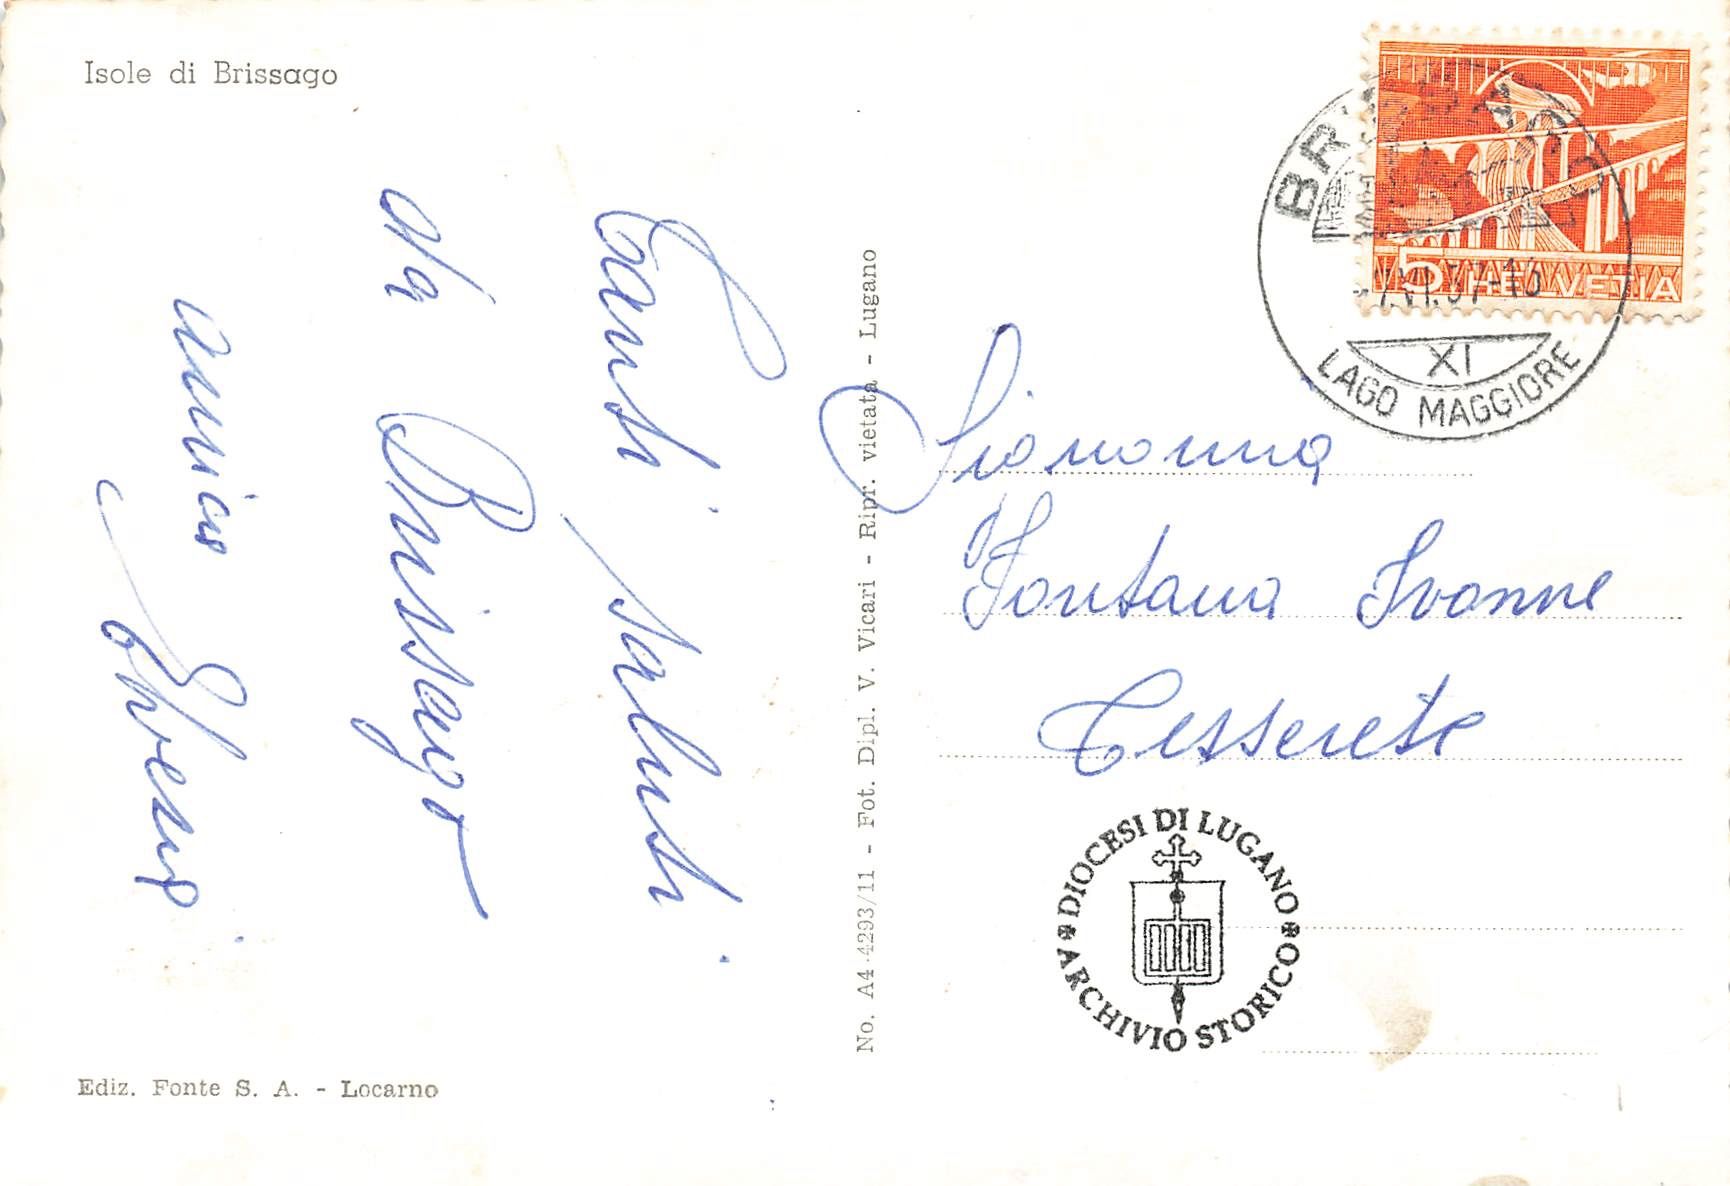 Isole di Brissago
Tanti saluti
da Brissago
amica
Ediz. Fonte S. A. - Locarno
No. A4-4293/11 - Fot. Dipl. V. Vicari - Ripr. vietata - Lugano
5 HELVETIA
XI
LAGO MAGGIORE
Signorina
Fontana Ivonne
Tesserete
DIOCESI DI LUGANO
ARCHIVIO STORICO